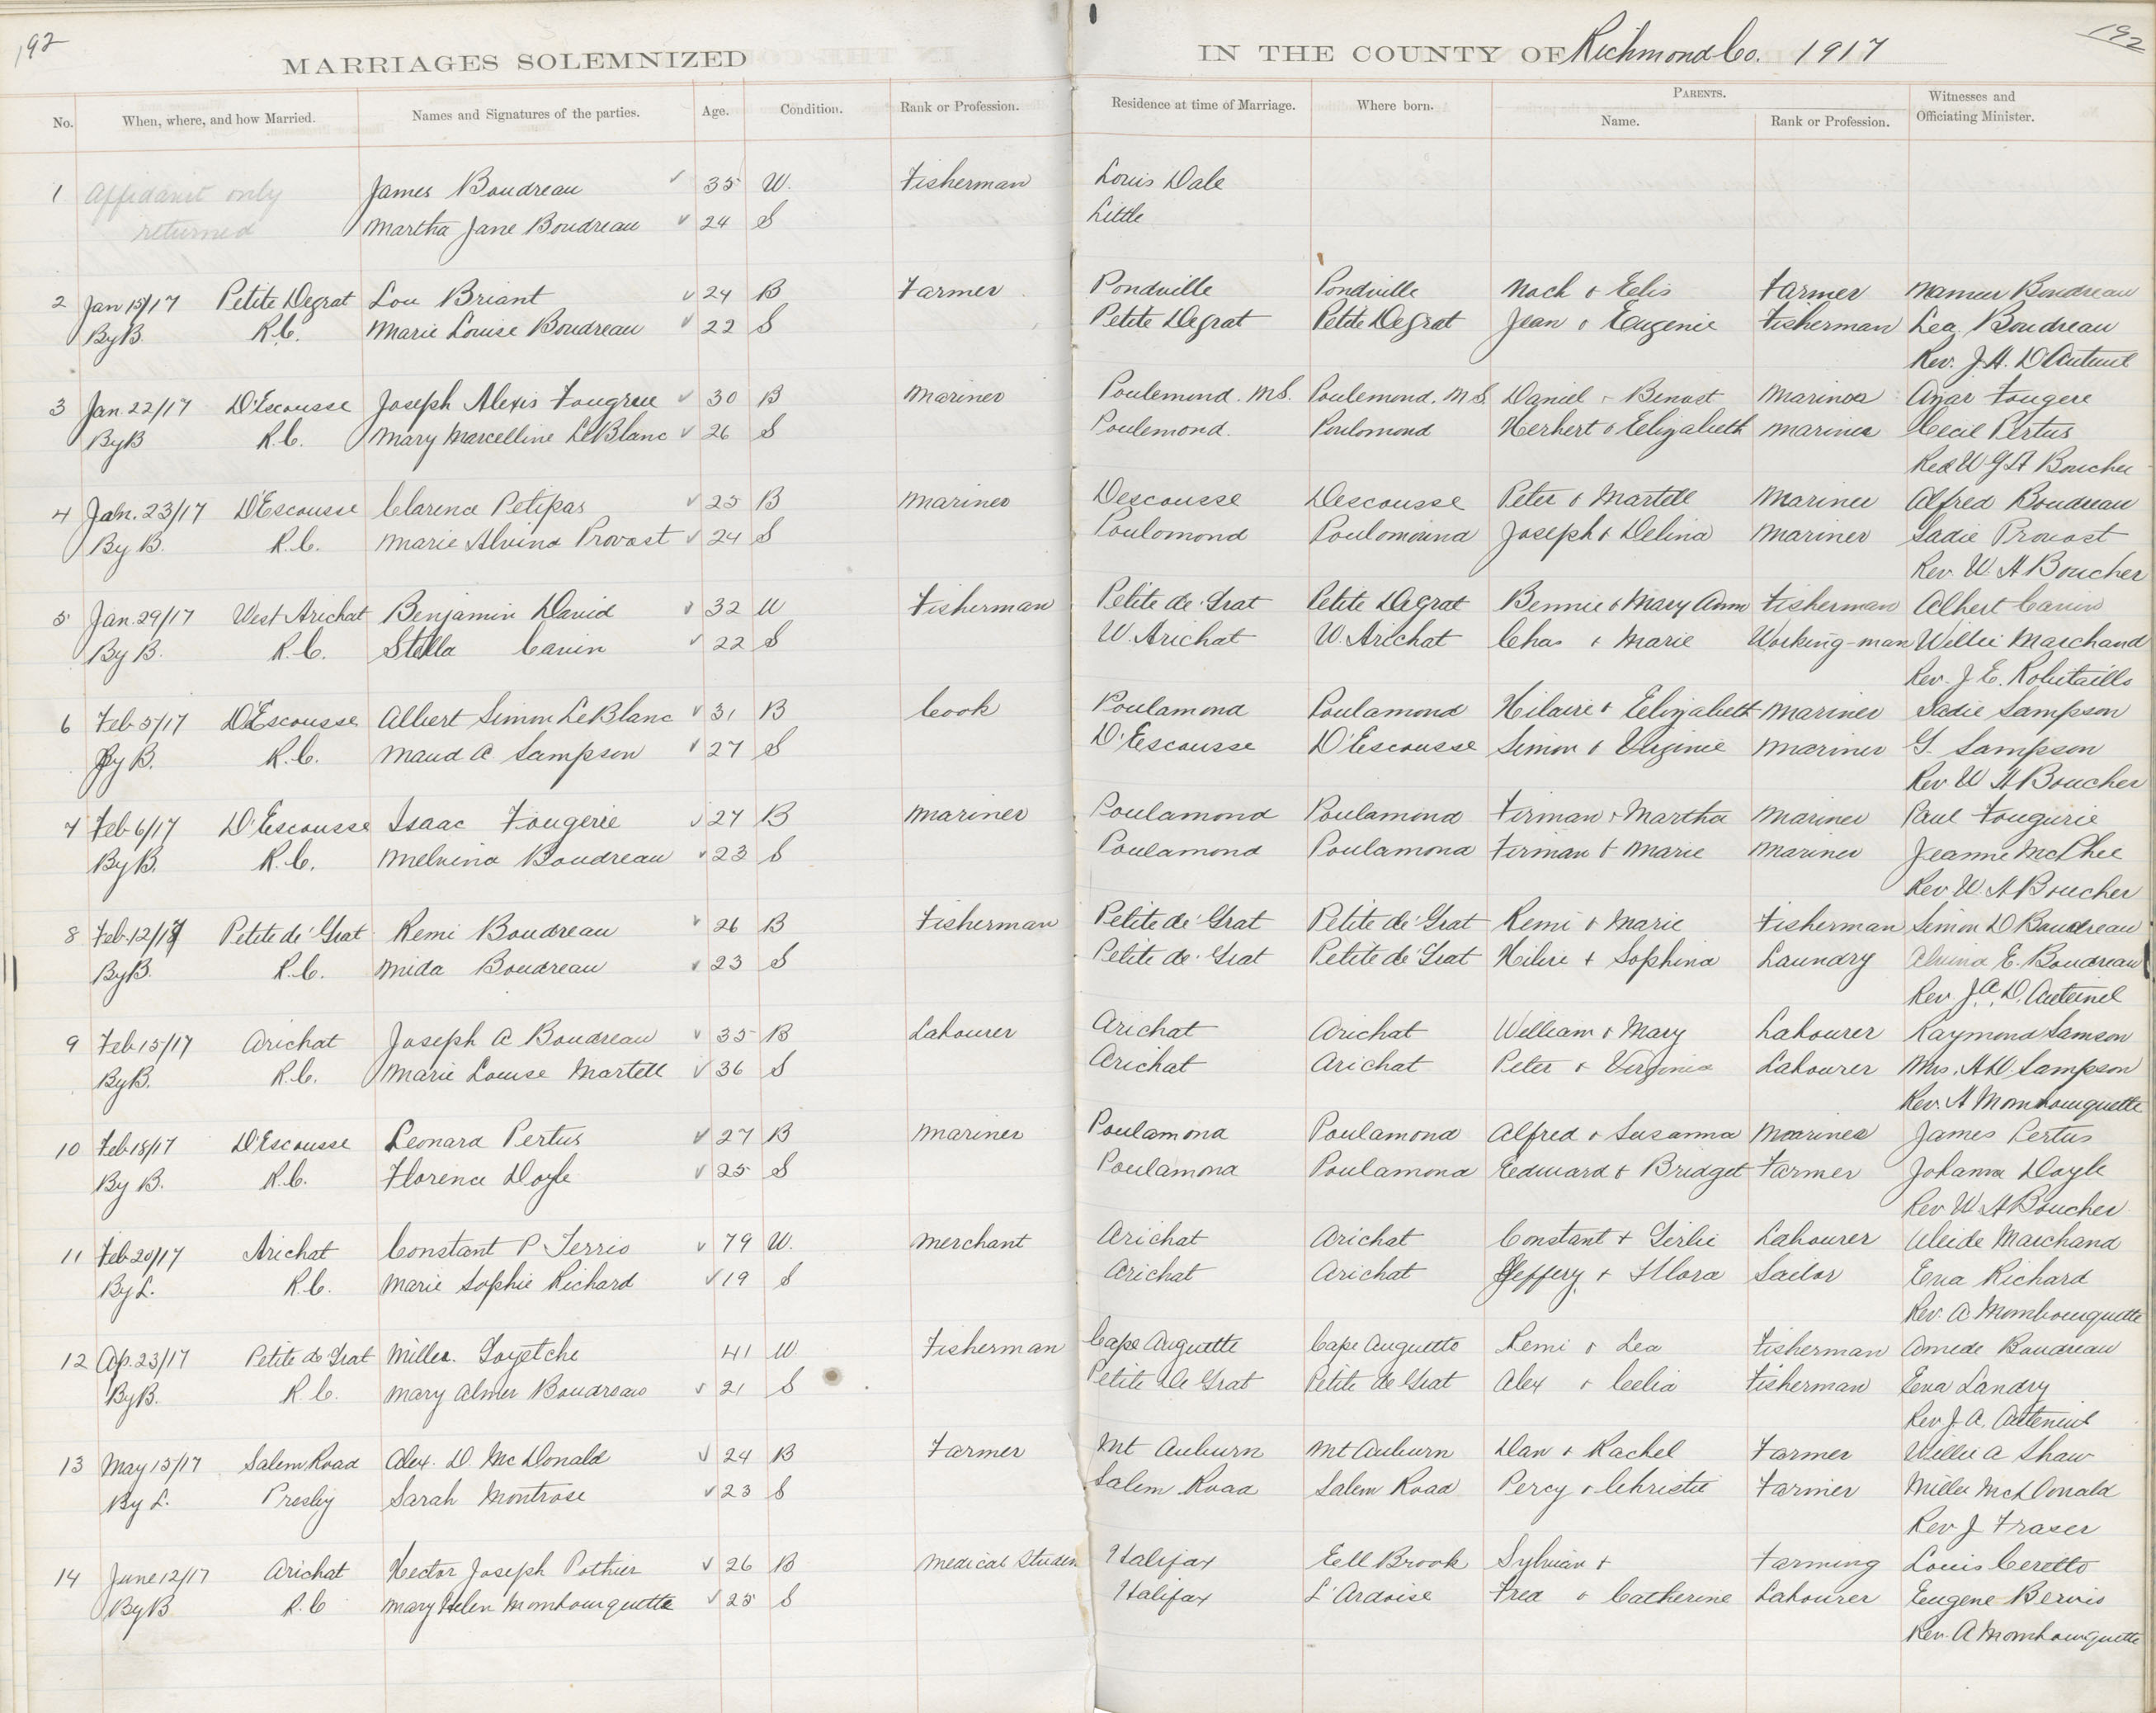 192
MARRIAGES SOLEMNIZED IN THE COUNTY OF Richmond Co. 1917
192
No. When, where, and how Married. Names and Signatures of the parties. Age. Condition. Rank or Profession. Residence at time of Marriage. Where born. PARENTS. Name. Rank or Profession. Witnesses and Officiating Minister.
1 Affidavit only James Boudreau 35 W. Fisherman Louis Dale
returned Martha Jane Boudreau 24 S Little
2 Jan 15/17 Petite Degrat Lou Briant 24 B Farmer Pondville Pondville & Farmer Boudreau
By B. R.C. Marie Louise Boudreau 22 S Petite Degrat Petite Degrat Jean & Eugenie Fisherman Lea Boudreau
Rev. J.H. D'Auteuil
3 Jan. 22/17 D'Escousse Joseph Alexis Fougree 30 B Mariner Poulemond. M.S. Poulemond. M S. Daniel & Benost Mariner Fougere
By B R.C. Mary Marcelline LeBlanc 26 S Poulemond. Poulomond Herbert & Elizabeth Mariner Cecil Pertus
Rev W G A Boucher
4 Jan. 23/17 D'Escousse Clarence Petipas 25 B Mariner Descousse Descousse Peter & Martell Mariner Alfred Boudreau
By B. R.C. Marie Alvina Provost 24 S Poulomond Poulomound Joseph & Delina Mariner Sadie Provost
Rev. W. A Boucher
5 Jan. 29/17 West Arichat Benjamin David 32 W Fisherman Petite de Grat Petite Degrat Bennie & Mary Ann Fisherman Albert Cavin
By B. R.C. Stella Cavin 22 S W. Arichat W. Arichat Chas & Marie Working-man Willie Marchand
Rev. J. E. Robitaille
6 Feb 5/17 D'Escousse Albert Simon LeBlanc 31 B Cook Poulamond Poulamond Hilaire & Elizabeth Mariner Sadie Sampson
By B. R.C. Maud A Sampson 27 S D'Escousse D'Escousse Simon & Virginie Mariner G. Sampson
Rev. W A Boucher
7 Feb 6/17 D'Escousse Isaac Fougerie 27 B Mariner Poulamond Poulamond Firman & Martha Mariner Paul Fougurie
By B. R.C. Melvina Boudreau 23 S Poulamond Poulamond Firman & Marie Mariner Jeanne McPhee
Rev W A Boucher
8 Feb 12/17 Petite de Grat Remi Boudreau 26 B Fisherman Petite de Grat Petite de Grat Remi & Marie Fisherman Simon D Boudreau
By B. R.C. Mida Boudreau 23 S Petite de Grat Petite de Grat Hilire & Sophina Laundry Alvina E. Boudreau
Rev J. A. D. Auteinel
9 Feb 15/17 Arichat Joseph A Boudreau 35 B Labourer Arichat Arichat William & Mary Labourer Raymond Samson
By B. R.C. Marie Louise Martell 36 S Arichat Arichat Peter & Virginia Labourer Mrs. A D Sampson
Rev. A Mombourquette
10 Feb 18/17 D'Escousse Leonard Pertus 27 B Mariner Poulamond Poulamond Alfred & Susanna Mariner James Pertus
By B. R.C. Florence Doyle 25 S Poulamond Poulamond Eduuard & Bridget Farmer Johanna Doyle
Rev W A Boucher
11 Feb 20/17 Arichat Constant P Terrio 79 W. Merchant Arichat Arichat Constant & Labourer Marchand
By L. R.C. Marie Sophie Richard 19 S Arichat Arichat Jeffery & Flora Sailor Eva Richard
Rev. A Mombourquette
12 Ap. 23/17 Petite de Grat Miller Goyetche 41 W Fisherman Cape Auguette Cape Auguetto Remi & Lea Fisherman Amede Boudreau
By B. R.C. Mary Almer Boudreau 21 S Petite De Grat Petite de Grat Alex & Celia Fisherman Eva Landry
Rev J. A. Auteniul
13 May 15/17 Salem Road Alex. D. McDonald 24 B Farmer Mt Auburn Mt Auburn Dan & Rachel Farmer Willie A Shaw
By L. Presby Sarah Montrose 23 S Salem Road Salem Road Percy & Christie Farmer Miller McDonald
Rev J Fraser
14 June 12/17 Arichat Hector Joseph Pothier 26 B Medical Studen Halifax Eell Brook Sylvain & Farming Louis Ceretto
By B R.C Mary Helen Mombourquette 25 S Halifax L'Ardoise Fred & Catherine Labourer Eugene Bervis
Rev. A Mombourquette